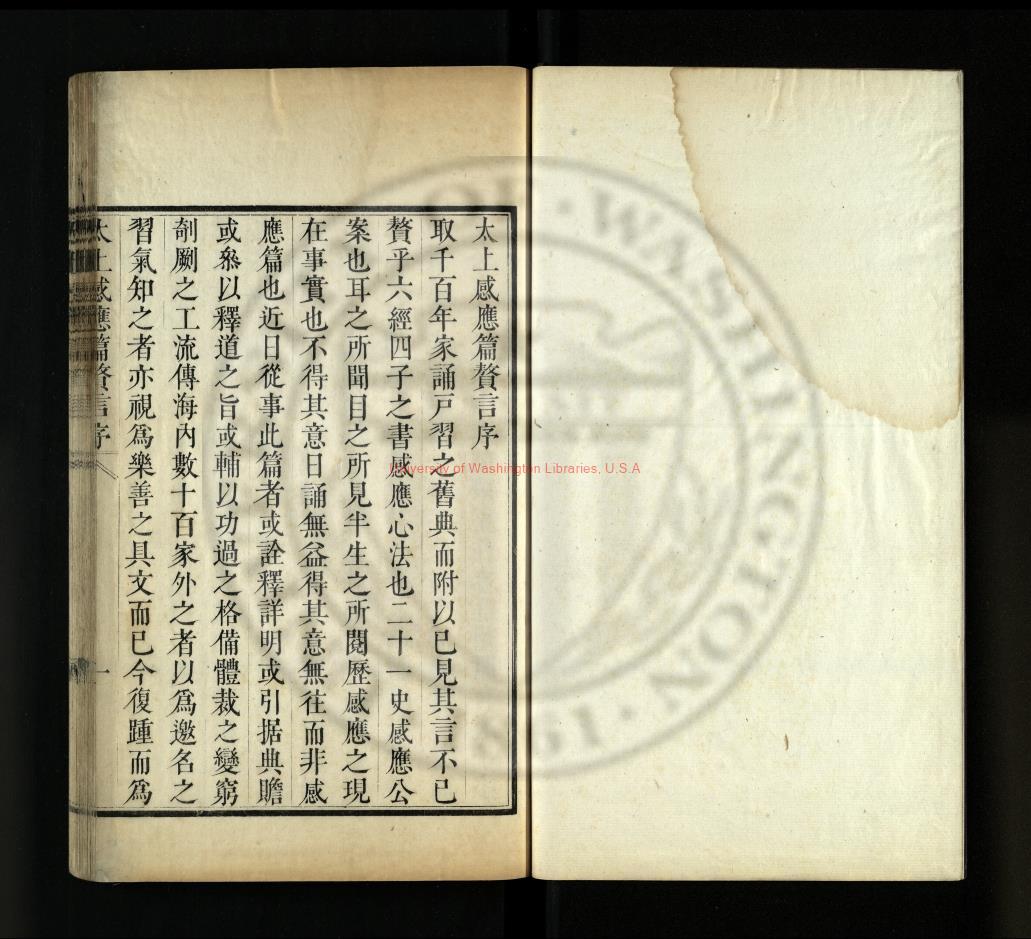 太上感應篇贅言序
取千百年家誦戸習之舊典而附以已見其言不已
贅乎六經四子之書感應心法也二十一史感應公
案也耳之所聞目之所見半生之所閱歷感應之現
在事實也不得其意日誦無益得其意無往而非感
應篇也近日從事此篇者或詮釋詳明或引据典贍
或叅以釋道之旨或輔以功過之格備體裁之變窮
剞劂之工流傳海內數十百家外之者以爲邀名之
習氣知之者亦視爲樂善之具文而已今復踵而爲
太上感應篇贅言序
一
University of Washington Libraries, U.S.A
WASHINGTON
1861